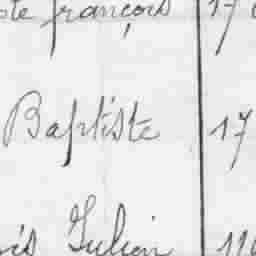 françois 17
Baptiste 17
Julien 11